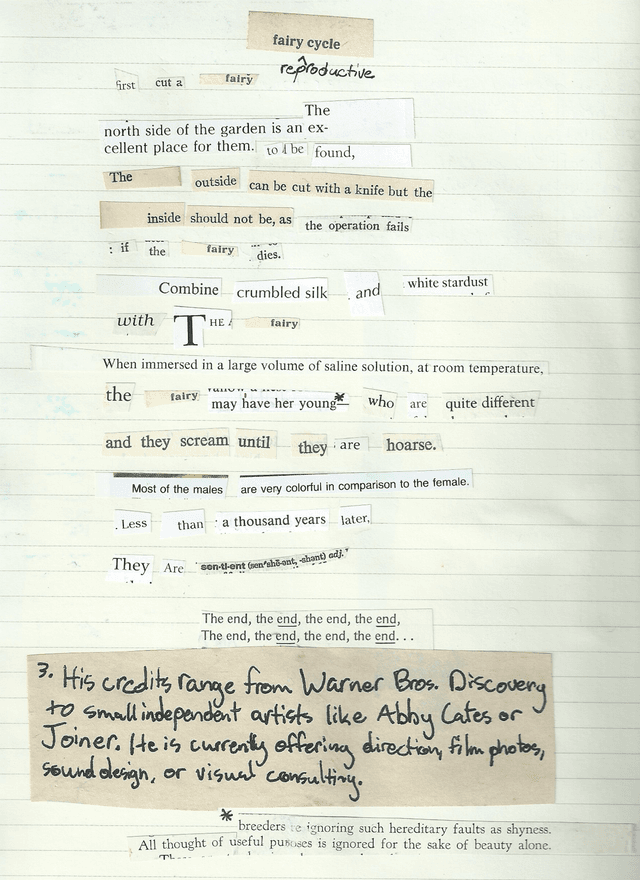 fairy cycle
reproductive
first cut a fairy
The
north side of the garden is an ex-
cellent place for them. to be found,
The outside can be cut with a knife but the
inside should not be, as the operation fails
: if the fairy dies.
Combine crumbled silk and white stardust
with THE fairy
When immersed in a large volume of saline solution, at room temperature,
the fairy may have her young* who are quite different
and they scream until they are hoarse.
Most of the males are very colorful in comparison to the female.
. Less than a thousand years later,
They Are sen·ti·ent (sen'shē-ənt, -shənt) adj.
The end, the end, the end, the end,
The end, the end, the end, the end...
3. His credits range from Warner Bros. Discovery
to small independent artists like Abby Cates or
Joiner. He is currently offering direction, film photos,
sound design, or visual consulting.
* breeders ignoring such hereditary faults as shyness.
All thought of useful purposes is ignored for the sake of beauty alone.